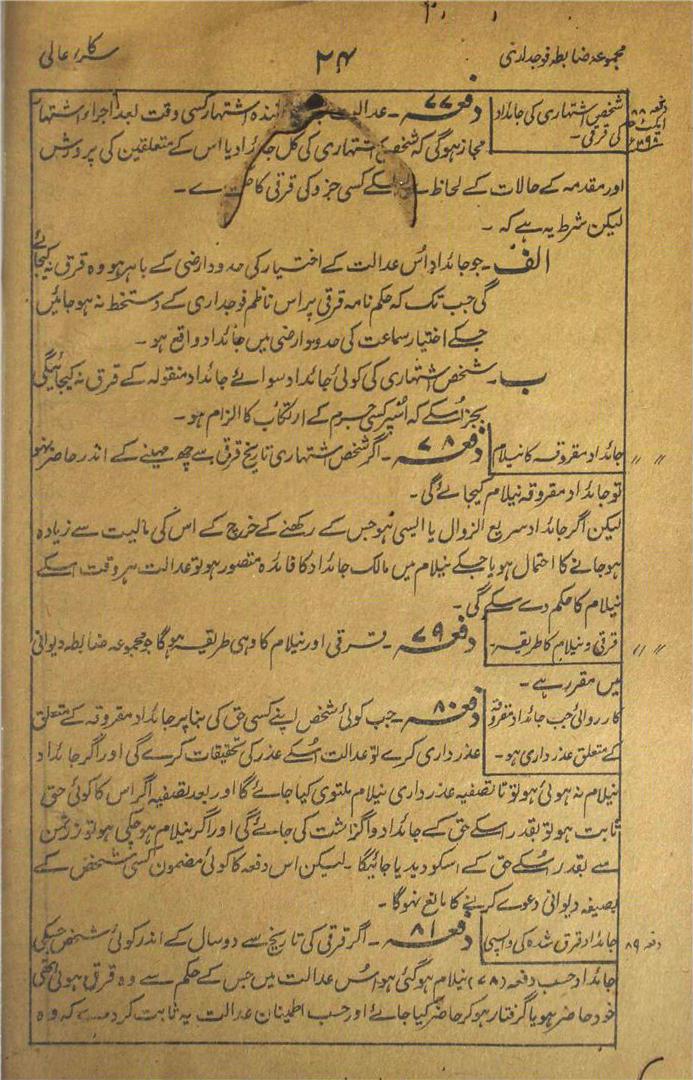 مجموعہ ضابطہ فوجداری ۲۴ سرکار عالی
دفعہ ۸۸ ایکٹ
شخص اشتہاری کی جائداد کی قرقی۔
دفعہ ۷۷۔ عدالت اشتہار کسی وقت بعد اجراء اشتہار
مجاز ہوگی کہ شخص اشتہاری کی کل جائداد یا اس کے متعلقین کی پرورش
اور مقدمہ کے حالات کے لحاظ سے اسکے کسی جزو کی قرقی کا دے۔
لیکن شرط یہ ہے کہ۔
الف۔ جو جائداد اُس عدالت کے اختیار کی حدود ارضی کے باہر ہو وہ قرق نہ کیجائے
گی جب تک کہ حکم نامہ قرقی پر اس ناظم فوجداری کے دستخط نہ ہوجائیں
جسکے اختیار سماعت کی حدود ارضی میں جائداد واقع ہو۔
ب۔ شخص اشتہاری کی کوئی جائداد سوائے جائداد منقولہ کے قرق نہ کیجائیگی
بجز اسکے کہ اُسپر کسی جرم کے ارتکاب کا الزام ہو۔
〃 〃 جائداد مقروقہ کا نیلام
دفعہ ۷۸۔ اگر شخص اشتہاری تاریخ قرقی سے چھ مہینے کے اندر حاضر نہو
تو جائداد مقروقہ نیلام کیجائے گی۔
لیکن اگر جائداد سریع الزوال یا ایسی ہو جس کے رکھنے کے خرچ کے اس کی مالیت سے زیادہ
ہوجانے کا احتمال ہو یا جسکے نیلام میں مالک جائداد کا فائدہ متصور ہو تو عدالت ہر وقت اسکے
نیلام کا حکم دے سکے گی۔
〃 〃 قرقی و نیلام کا طریقہ۔
دفعہ ۷۹۔ قرقی اور نیلام کا وہی طریقہ ہوگا جو مجموعہ ضابطہ دیوانی
میں مقرر ہے۔
کارروائی جب جائداد مقروقہ کے متعلق عذرداری ہو۔
دفعہ ۸۰۔ جب کوئی شخص اپنے کسی حق کی بنا پر جائداد مقروقہ کے متعلق
عذرداری کرے تو عدالت اُسکے عذر کی تحقیقات کرے گی اور اگر جائداد
نیلام نہ ہوئی ہو تو تا تصفیہ عذرداری نیلام ملتوی کیا جائے گا اور بعد تصفیہ اگر اس کا کوئی حق
ثابت ہو تو بقدر اسکے حق کے جائداد واگزاشت کی جائے گی اور اگر نیلام ہوچکی ہو تو زر ثمن
سے بقدر اُسکے حق کے اسکو دیدیا جائیگا۔ لیکن اس دفعہ کا کوئی مضمون کسی شخص کے
بصیغہ دیوانی دعوے کرنے کا مانع نہوگا۔
دفعہ ۸۹ جائداد قرق شدہ کی واپسی
دفعہ ۸۱۔ اگر قرقی کی تاریخ سے دو سال کے اندر کوئی شخص جسکی
جائداد حسب دفعہ (۷۸) نیلام ہوگئی ہو اُس عدالت میں جس کے حکم سے وہ قرق ہوئی تھی
خود حاضر ہو یا گرفتار ہوکر حاضر کیا جائے اور حسب اطمینان عدالت یہ ثابت کردے کہ وہ